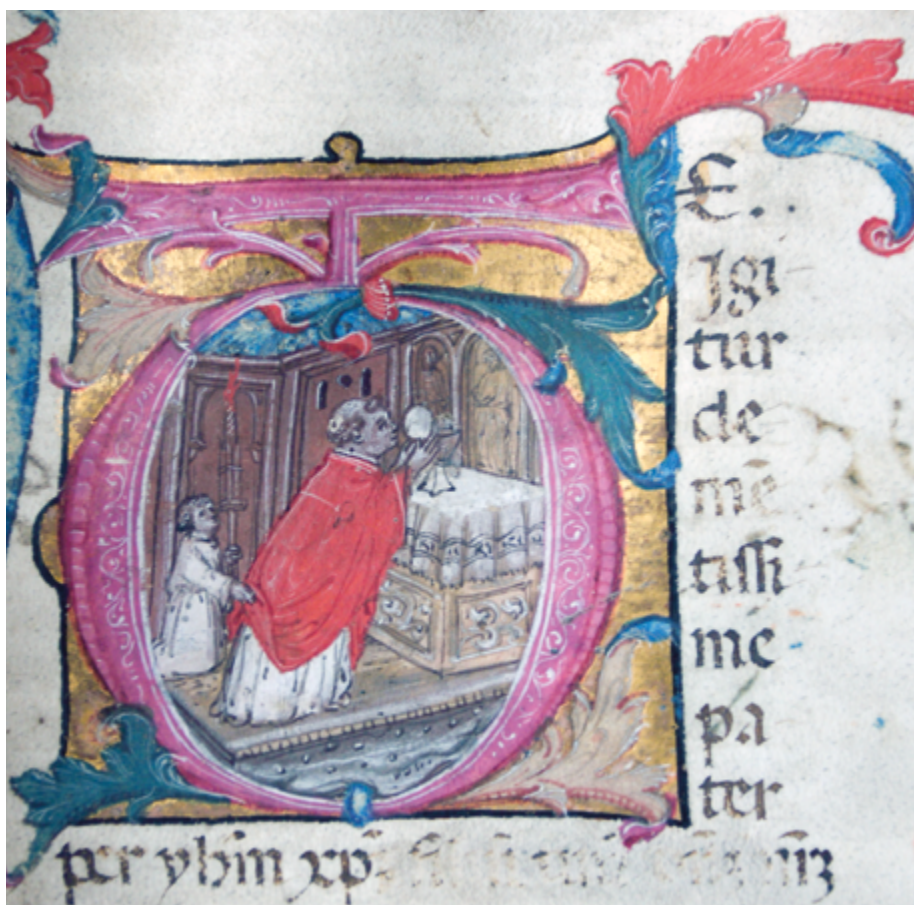 TE..
Igi
tur
de
mē
tissi
me
pa
ter
per yhm xpm